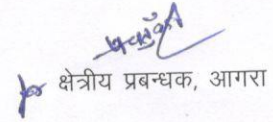 क्षेत्रीय प्रबन्धक, आगरा